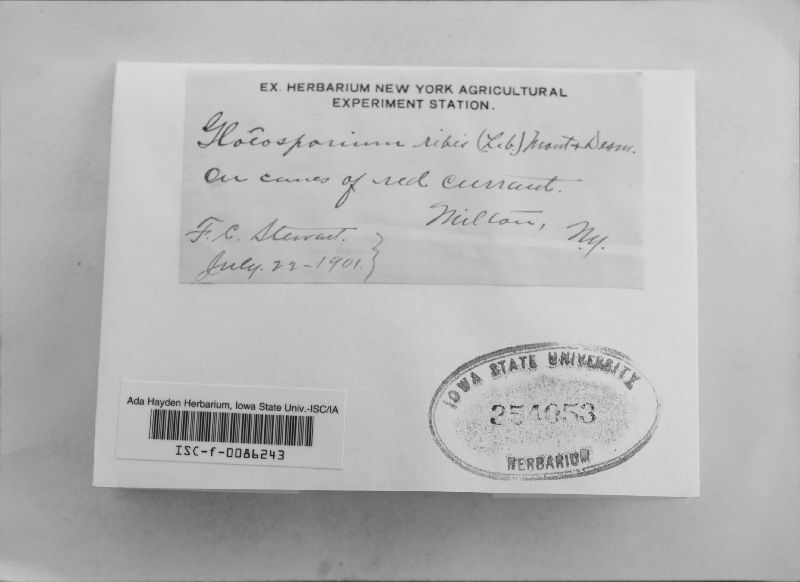 EX. HERBARIUM NEW YORK AGRICULTURAL
EXPERIMENT STATION.
Gloeosporium ribis (Lib.) Mont & Desm.
On canes of red currant.
Milton, N.Y.
F. C. Stewart.
July. 22-1901.
Ada Hayden Herbarium, Iowa State Univ.-ISC/IA
ISC-f-0086243
IOWA STATE UNIVERSITY
354053
HERBARIUM